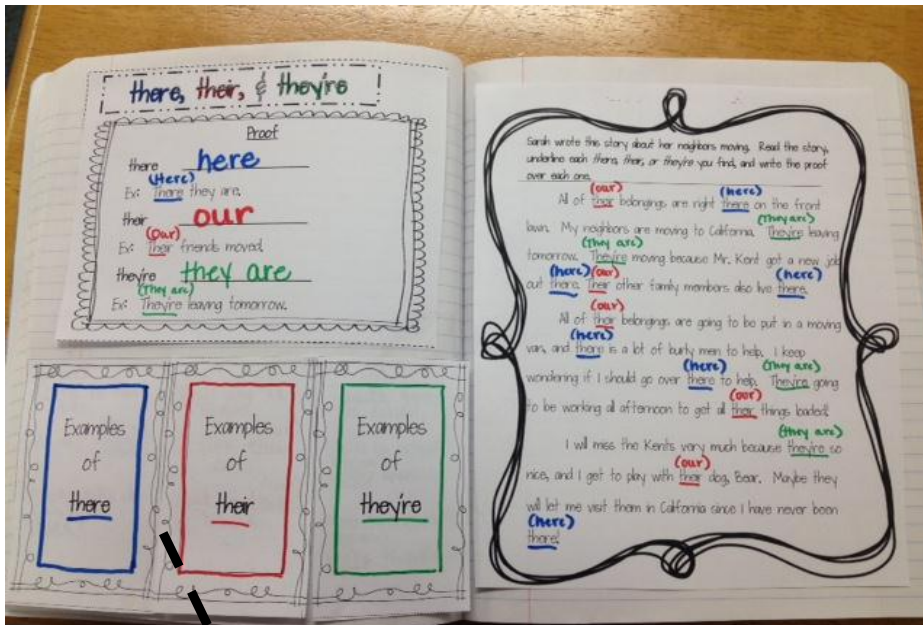 there, their, & they're
Proof
there here
(Here)
Ex: There they are.
their our
(Our)
Ex: Their friends moved.
they're they are
(They are)
Ex: They're leaving tomorrow.
Examples
of
there
Examples
of
their
Examples
of
they're
Sarah wrote this story about her neighbors moving. Read the story,
underline each there, their, or they're you find, and write the proof
over each one.
(our) (here)
All of their belongings are right there on the front
(They are)
lawn. My neighbors are moving to California. They're leaving
(They are)
tomorrow. They're moving because Mr. Kent got a new job
(here) (our) (here)
out there. Their other family members also live there.
(our)
All of their belongings are going to be put in a moving
(here)
van, and there is a lot of burly men to help. I keep
(here) (They are)
wondering if I should go over there to help. They're going
(our)
to be working all afternoon to get all their things loaded!
(they are)
I will miss the Kents very much because they're so
(our)
nice, and I get to play with their dog, Bear. Maybe they
will let me visit them in California since I have never been
(here)
there!